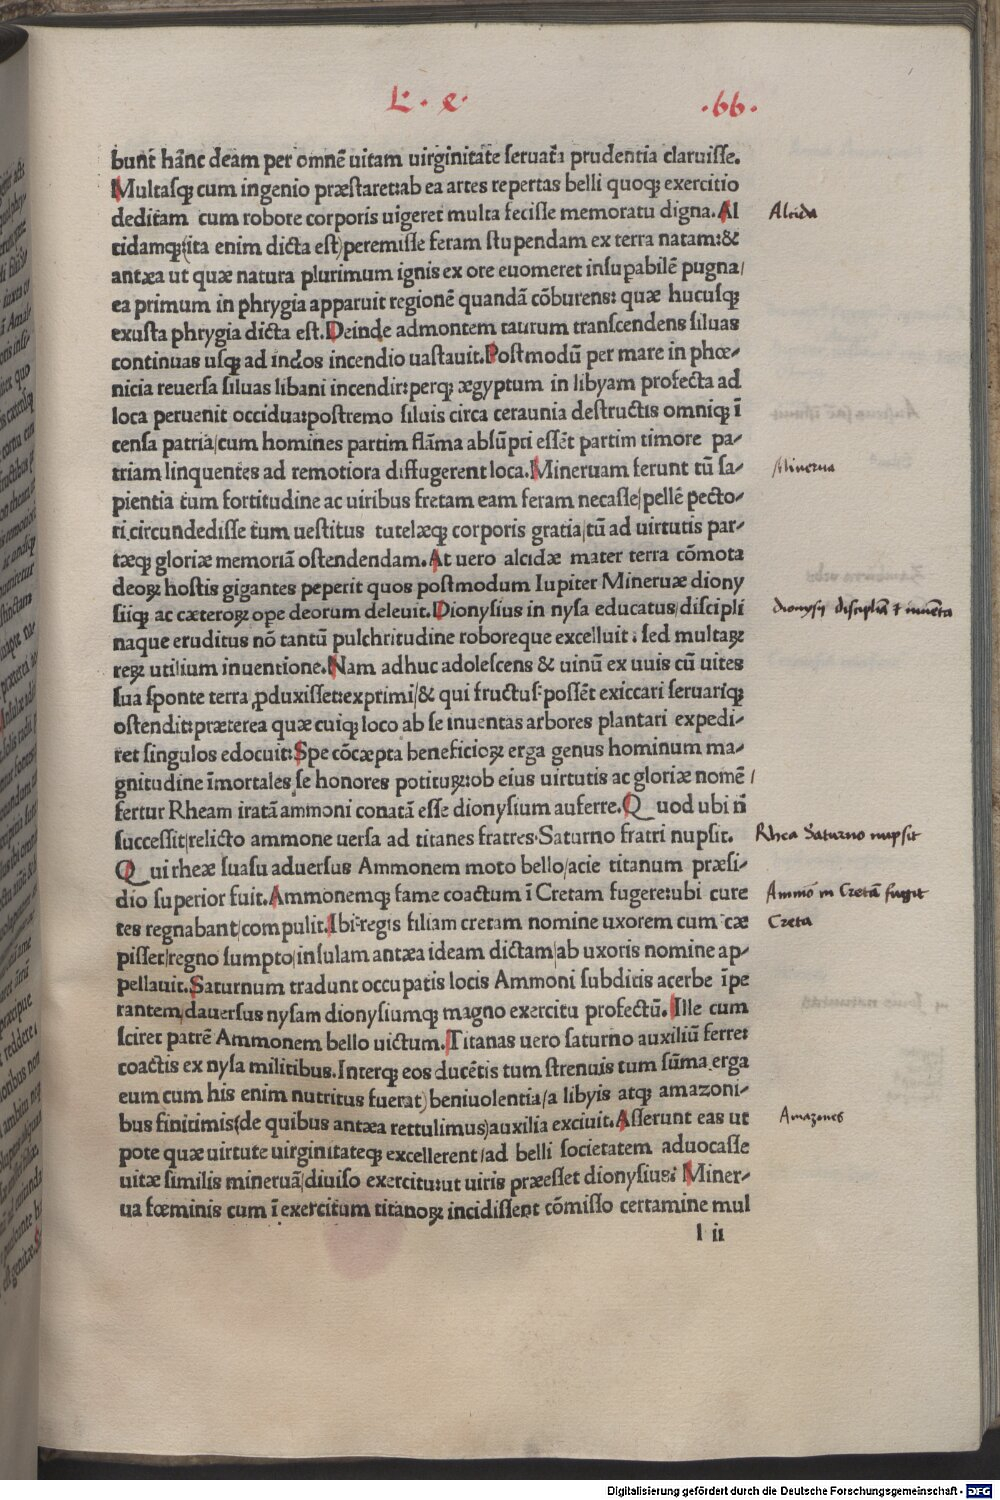 L. e. .66.
bunt hāc deam per omnē uitam uirginitate seruata prudentia claruisse.
Multasqꝫ cum ingenio præstaret:ab ea artes repertas belli quoqꝫ exercitio
deditam cum robore corporis uigeret multa fecisse memoratu digna. Al
Alcida
cidamqꝫ(ita enim dicta est)peremisse feram stupendam ex terra natam:&
antæa ut quæ natura plurimum ignis ex ore euomeret insupabilē pugna/
ea primum in phrygia apparuit regionē quandā cōburens: quæ hucusqꝫ
exusta phrygia dicta est.Deinde admontem taurum transcendens siluas
continuas usqꝫ ad indos incendio uastauit.Postmodū per mare in phœ-
nicia reuersa siluas libani incendit:perqꝫ ægyptum in libyam profecta ad
loca peruenit occidua:postremo siluis circa ceraunia destructis omniqꝫ ī
censa patria/cum homines partim flāma absūpti essēt partim timore pa-
triam linquentes ad remotiora diffugerent loca.Mineruam ferunt tū sa-
Minerua
pientia tum fortitudine ac uiribus fretam eam feram necasse/pellē pecto-
ri circundedisse tum uestitus tutelæqꝫ corporis gratia/tū ad uirtutis par-
tæqꝫ gloriæ memoriā ostendendam.At uero alcidæ mater terra cōmota
deoꝝ hostis gigantes peperit quos postmodum Iupiter Mineruæ diony
siiqꝫ ac cæteroꝝ ope deorum deleuit.Dionysius in nysa educatus/discipli
dionysij disciplīa & inuēta
naque eruditus nō tantū pulchritudine roboreque excelluit: sed multaꝝ
reꝝ utilium inuentione.Nam adhuc adolescens & uinū ex uuis cū uites
sua sponte terra ꝓduxisset:exprimi/& qui fructus possēt exiccari seruariqꝫ
ostendit:præterea quæ cuiqꝫ loco ab se inuentas arbores plantari expedi-
ret singulos edocuit:Spe cōcæpta beneficioꝝ erga genus hominum ma-
gnitudine īmortales se honores potituꝝ:ob eius uirtutis ac gloriæ nomē/
fertur Rheam iratā ammoni conatā esse dionysium auferre.Quod ubi nō
successit/relicto ammone uersa ad titanes fratres.Saturno fratri nupsit.
Rhea Saturno nupsit
Qui rheæ suasu aduersus Ammonem moto bello/acie titanum præsi-
dio superior fuit.Ammonemqꝫ fame coactum ī Cretam fugere:ubi cure
Ammō in Cretā fugit
tes regnabant/compulit.Ibi regis filiam cretam nomine uxorem cum cæ
Creta
pisset/regno sumpto/insulam antæa ideam dictam/ab uxoris nomine ap-
pellauit.Saturnum tradunt occupatis locis Ammoni subditis acerbe īpe
rantem/dauersus nysam dionysiumqꝫ magno exercitu profectū.Ille cum
sciret patrē Ammonem bello uictum.Titanas uero saturno auxiliū ferre:
coactis ex nysa militibus.Interqꝫ eos ducētis tum strenuis tum sūma erga
eum cum his enim nutritus fuerat)beniuolentia/a libyis atqꝫ amazoni-
bus finitimis(de quibus antæa rettulimus)auxilia exciuit.Asserunt eas ut
Amazones
pote quæ uirtute uirginitateqꝫ excellerent/ad belli societatem aduocasse
uitæ similis mineruā/diuiso exercitu:ut uiris præesset dionysius: Miner-
ua fœminis cum ī exercitum titanoꝝ incidissent cōmisso certamine mul
l ii
Digitalisierung gefördert durch die Deutsche Forschungsgemeinschaft - DFG